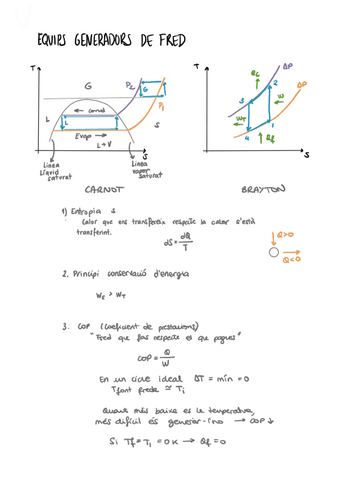 EQUIPS GENERADORS DE FRED
T
G
P2
G
P1
L
L
canvi
S
Evap
L+V
S
Línea
Líquid
saturat
Línea
vapor
saturat
CARNOT
T
ΔP
QC
2
3
ΔP
W
WT
1
4
Qf
S
BRAYTON
1) Entropia s
Calor que ens transfereix respecte la calor s'està
transferint.
dS = dQ
T
Q>0
Q<0
2. Principi conservació d'energia
WE > WT
3. COP (Coeficient de prestacions)
"Fred que fas respecte el que pagues"
COP = Q
W
En un cicle ideal ΔT = mín = 0
Tfont freda ≃ Ti
Quant més baixa és la temperatura,
més difícil és generar-lo → COP ↓
Si Tf = Ti = 0 K → Qf = 0